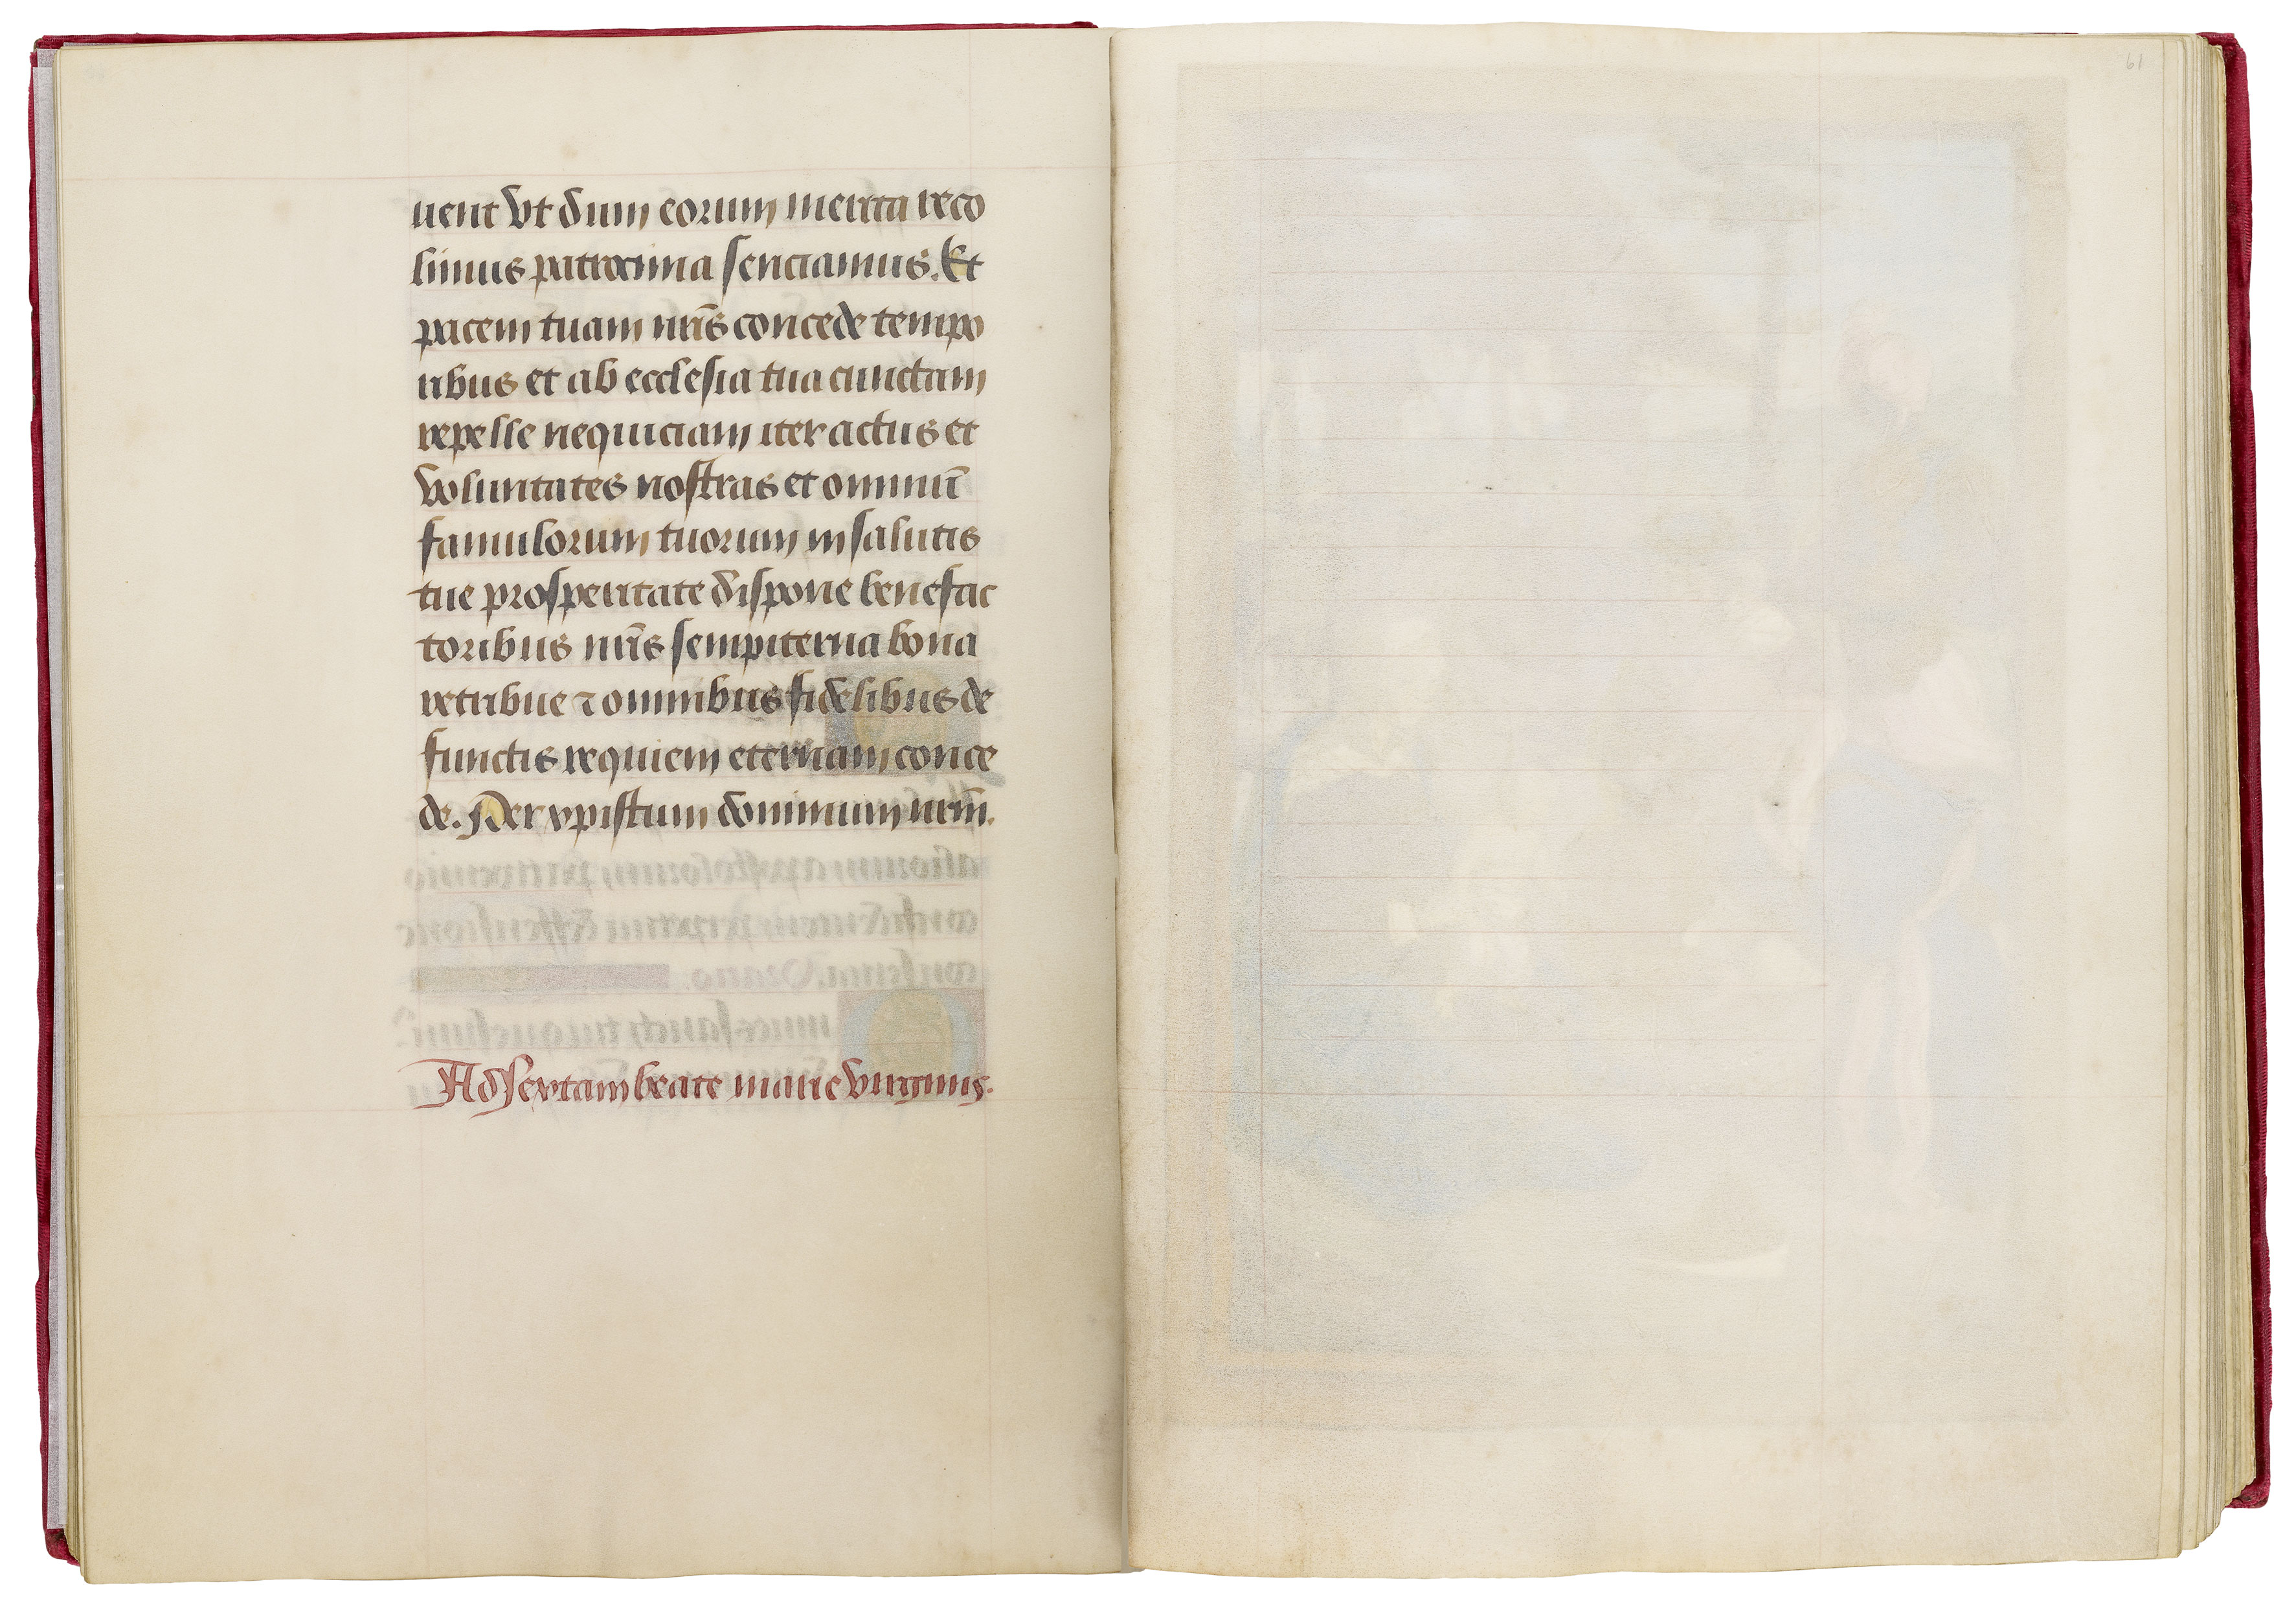 uent vt dum eorum merita reco
limus patrocinia senciamus. Et
pacem tuam nr̄is concede tempo
ribus et ab ecclesia tua cunctam
repelle nequiciam iter actus et
voluntates nostras et omniū
famulorum tuorum in salutis
tue prosperitate dispone benefac
toribus nr̄is sempiterna bona
retribue ⁊ omnibus fidelibus de
functis requiem eternam conce
de. Per xpistum dominum nrm̄.
Ad sextam beate marie virginis.
61